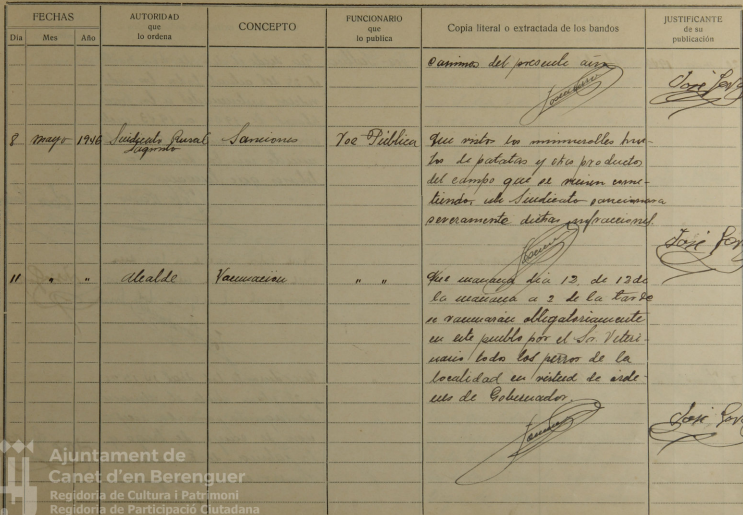 FECHAS
Día Mes Año
AUTORIDAD
que
lo ordena
CONCEPTO
FUNCIONARIO
que
lo publica
Copia literal o extractada de los bandos
JUSTIFICANTE
de su
publicación
caminos del presente año
José
8 mayo 1946 Sindicato Rural Sanciones Voz Pública Que visto los innumerables hur-
Sagunto
tos de patatas y otro productos
del campo que se vienen come-
tiendo, este Sindicato sancionara
severamente dichas infracciones.
José
11 " " Alcalde Vacunación " " Que mañana dia 12 de 12 de
la mañana a 2 de la tarde
se vacunarán obligatoriamente
en este pueblo por el Sr. Veteri-
nario todos los perros de la
localidad en virtud de orde-
nes de Gobernador.
José
Ajuntament de
Canet d'en Berenguer
Regidoria de Cultura i Patrimoni
Regidoria de Participació Ciutadana